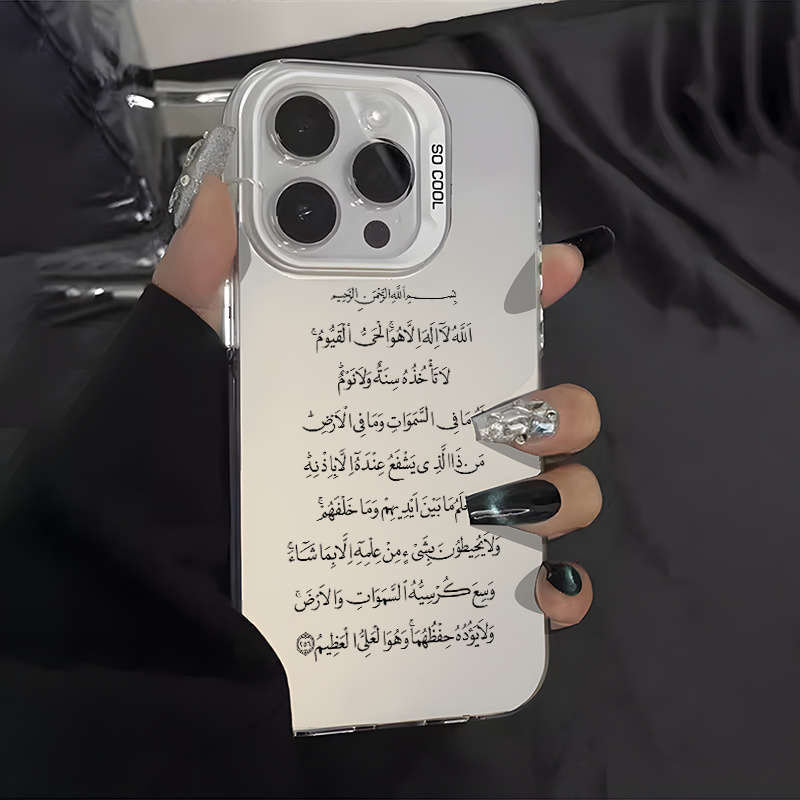 SO COOL
بِسْمِ اللَّهِ الرَّحْمَنِ الرَّحِيمِ
اَللَّهُ لَآ اِلَهَ اِلَّا هُوَ الْحَىُّ الْقَيُّومُ
لَا تَأْخُذُهُ سِنَةٌ وَلَا نَوْمٌ
مَا فِى السَّمَوَاتِ وَمَا فِى الْاَرْضِ
مَن ذَا الَّذِى يَشْفَعُ عِنْدَهُ اِلَّا بِاِذْنِهِ
مَا بَيْنَ اَيْدِيهِمْ وَمَا خَلْفَهُمْ
وَلَا يُحِيطُونَ بِشَىْءٍ مِنْ عِلْمِهِ اِلَّا بِمَا شَآءَ
وَسِعَ كُرْسِيُّهُ السَّمَوَاتِ وَالْاَرْضَ
وَلَا يَؤُدُهُ حِفْظُهُمَا وَهُوَ الْعَلِىُّ الْعَظِيمُ